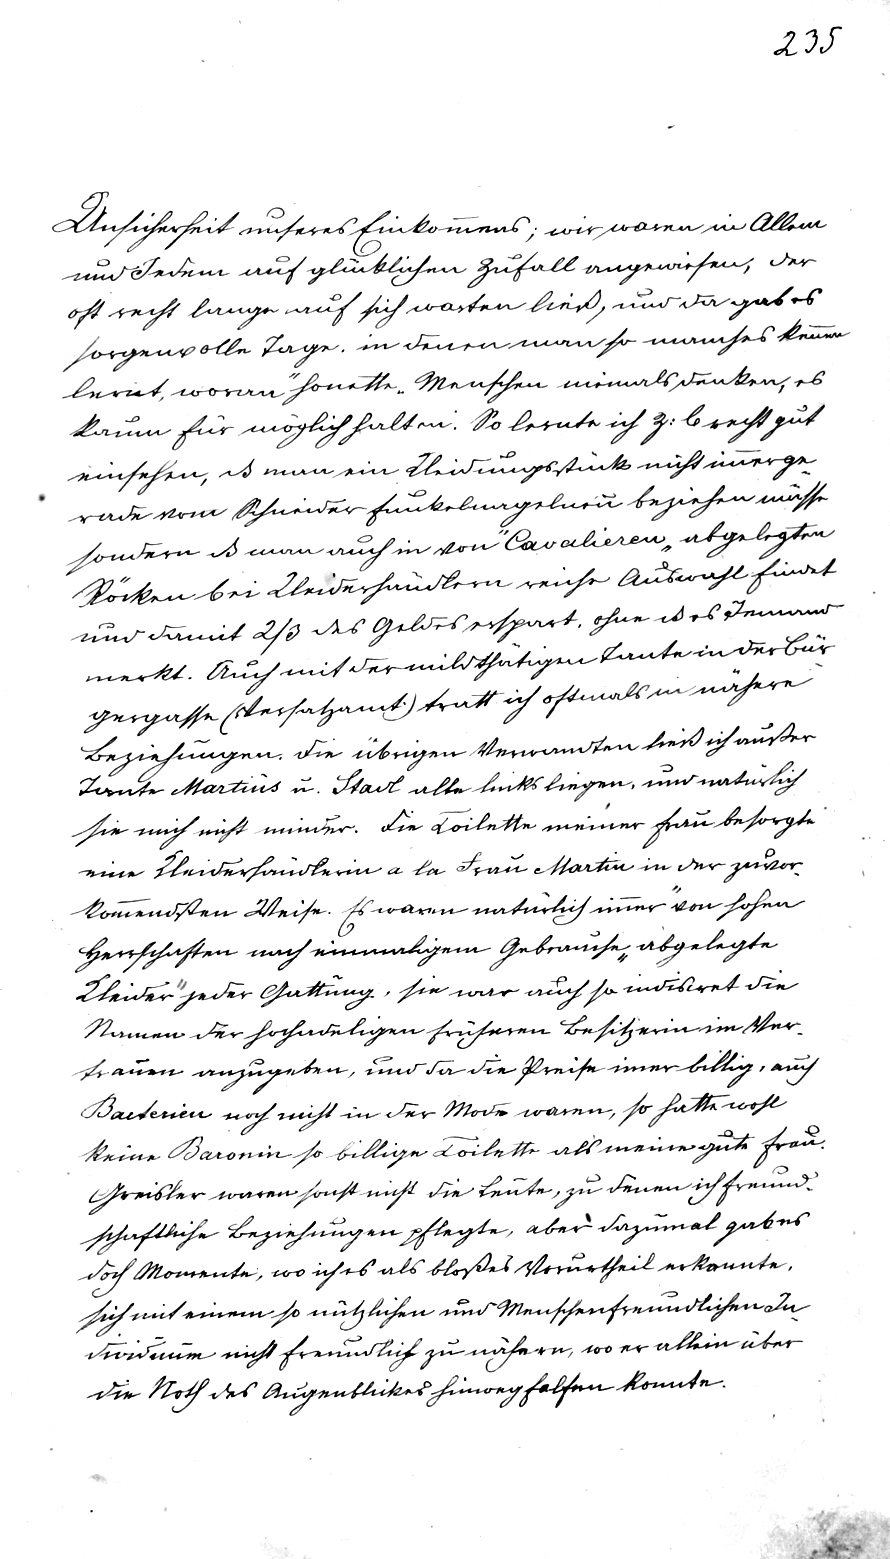 235
Unsicherheit unseres Einkom̄ens; wir waren in Allem
und Jedem auf glücklichen Zufall angewiesen, der
oft recht lange auf sich warten ließ, und da gab es
sorgenvolle Tage. in denen man so manches kennen
lernt, woran "honette" Menschen niemals denken, es
kaum für möglich halten. So lernte ich z: b recht gut
einsehen, daß man ein Kleidungsstück nicht im̄er ge-
rade vom Schneider funkelnagelneu beziehen müsse
sondern daß man auch in von "Cavalieren" abgelegten
Röcken bei Kleiderhändlern reiche Auswahl findet
und damit 2/3 des Geldes erspart, ohne daß es Jemand
merkt. Auch mit der mildthätigen Tante in der Bür-
gergasse (Versatzamt) tratt ich oftmals in nähere
Beziehungen. Die übrigen Verwandten ließ ich außer
Tante Martius u. Stadl alle links liegen, und natürlich
sie mich nicht minder. Die Toilette meiner Frau besorgte
eine Kleiderhändlerin a la Frau Martin in der zuvor-
kom̄endsten Weise. Es waren natürlich im̄er "von hohen
Herrschaften nach einmaligem Gebrauche" abgelegte
Kleider" jeder Gattung, sie war auch so indiscret die
Namen der hochadeligen früheren Besitzerin im Ver-
trauen anzugeben, und da die Preise imer billig, auch
Bacterien noch nicht in der Mode waren, so hatte wohl
keine Baronin so billige Toilette als meine gute Frau.
Greisler waren sonst nicht die Leute, zu denen ich freund-
schaftliche Beziehungen pflegte, aber dazumal gab es
doch Momente, wo ich es als bloßes Vorurtheil erkannte,
sich mit einem so nützlichen und Menschenfreundlichen In-
dividuum nicht freundlich zu nähern, wo er allein über
die Noth des Augenblickes hinweghelfen konnte.